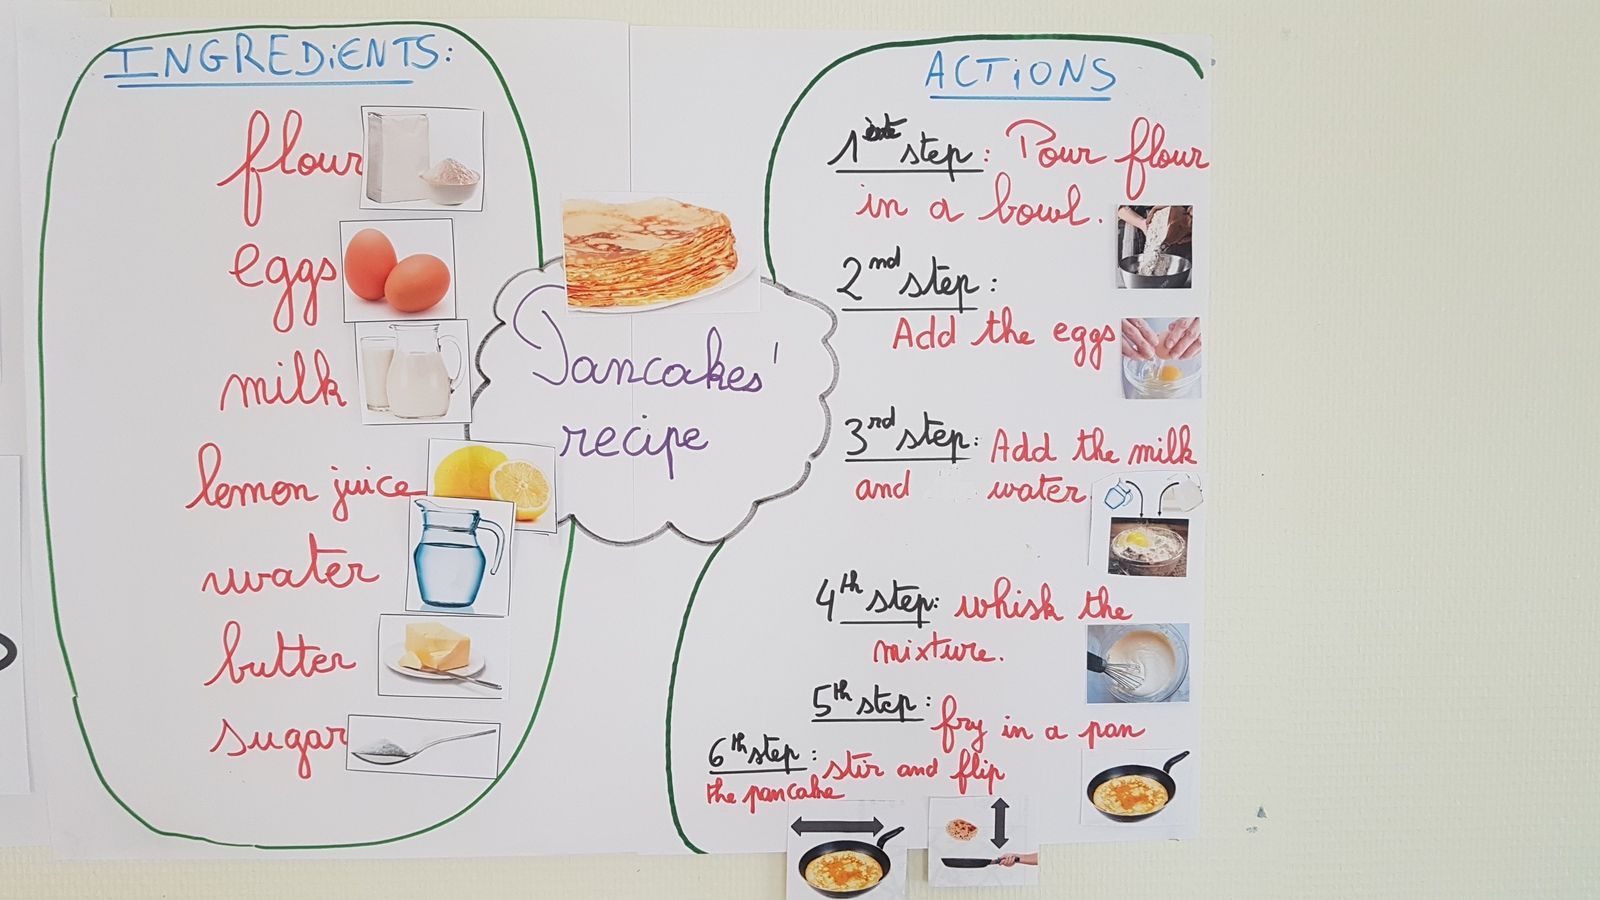 INGREDiENTS:
flour
eggs
milk
lemon juice
water
butter
sugar
Pancakes'
recipe
ACTiONS
step: Pour flour
in a bowl.
2nd step:
Add the eggs
3rd step: Add the milk
and water
4th step: whisk the
mixture.
5th step: fry in a pan
6th step: stir and flip
the pancake